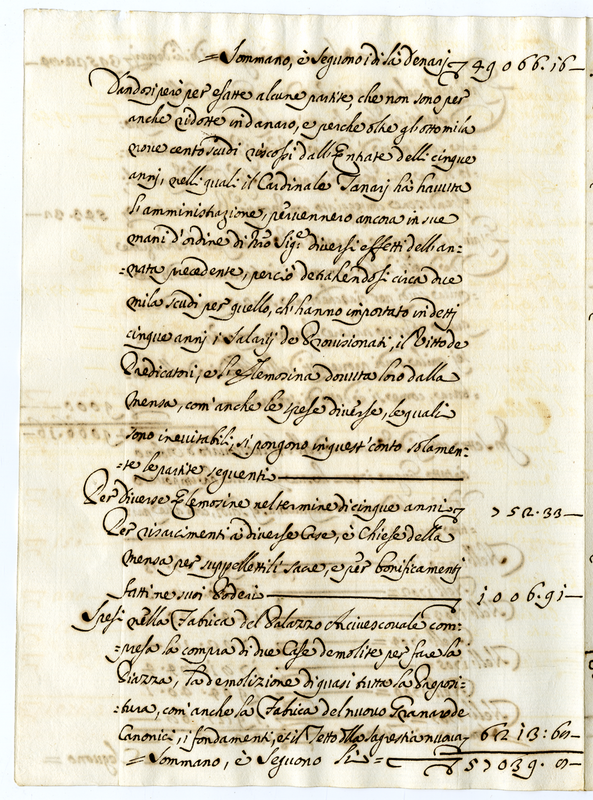 = Sommano, è seguono i di là denarj 49066.16 —
Dandosi però per esatte alcune partite, che non sono per
anche ridotte in danaro, e perche oltre gl'ottomila
nove cento scudi riscossi dall'Entrate delli cinque
annj, nelli quali il Cardinale Tanarj hà havuta
l'amministrazione, pervennero ancora in sue
mani d'ordine di Nro Sigre diversi effetti dell'an-
=nata precedente, perciò detrahendosi circa due
mila scudi per quello, ch'hanno importato in dettj
cinque annj i Salarij de Provisionati, il Vitto de
Predicatori, e l'Elemosina dovuta loro dalla
Mensa, com'anche le spese diverse, le quali
sono inevitabili, si pongono in quest'conto solamen-
=te le partite seguenti
Per diverse Elemosine nel termine di cinque anni 752.33 —
Per risarcimenti à diverse Case, è Chiese della
Mensa per suppellettili sacre, e per bonificamentj
fatti ne suoi Poderi 1006.91 —
Spesi nella Fabrica del Palazzo Arcivescovale com-
=presa la compra di due Case demolite per fare la
Piazza, la demolizione di quasi tutta la Preposi-
=tura, com'anche la Fabrica del nuovo Granaro de
Canonici, i fondamenti, et il Tetto della Sagrestia nuova 6213:60 —
= Sommano, è Seguono li 57039.0 —